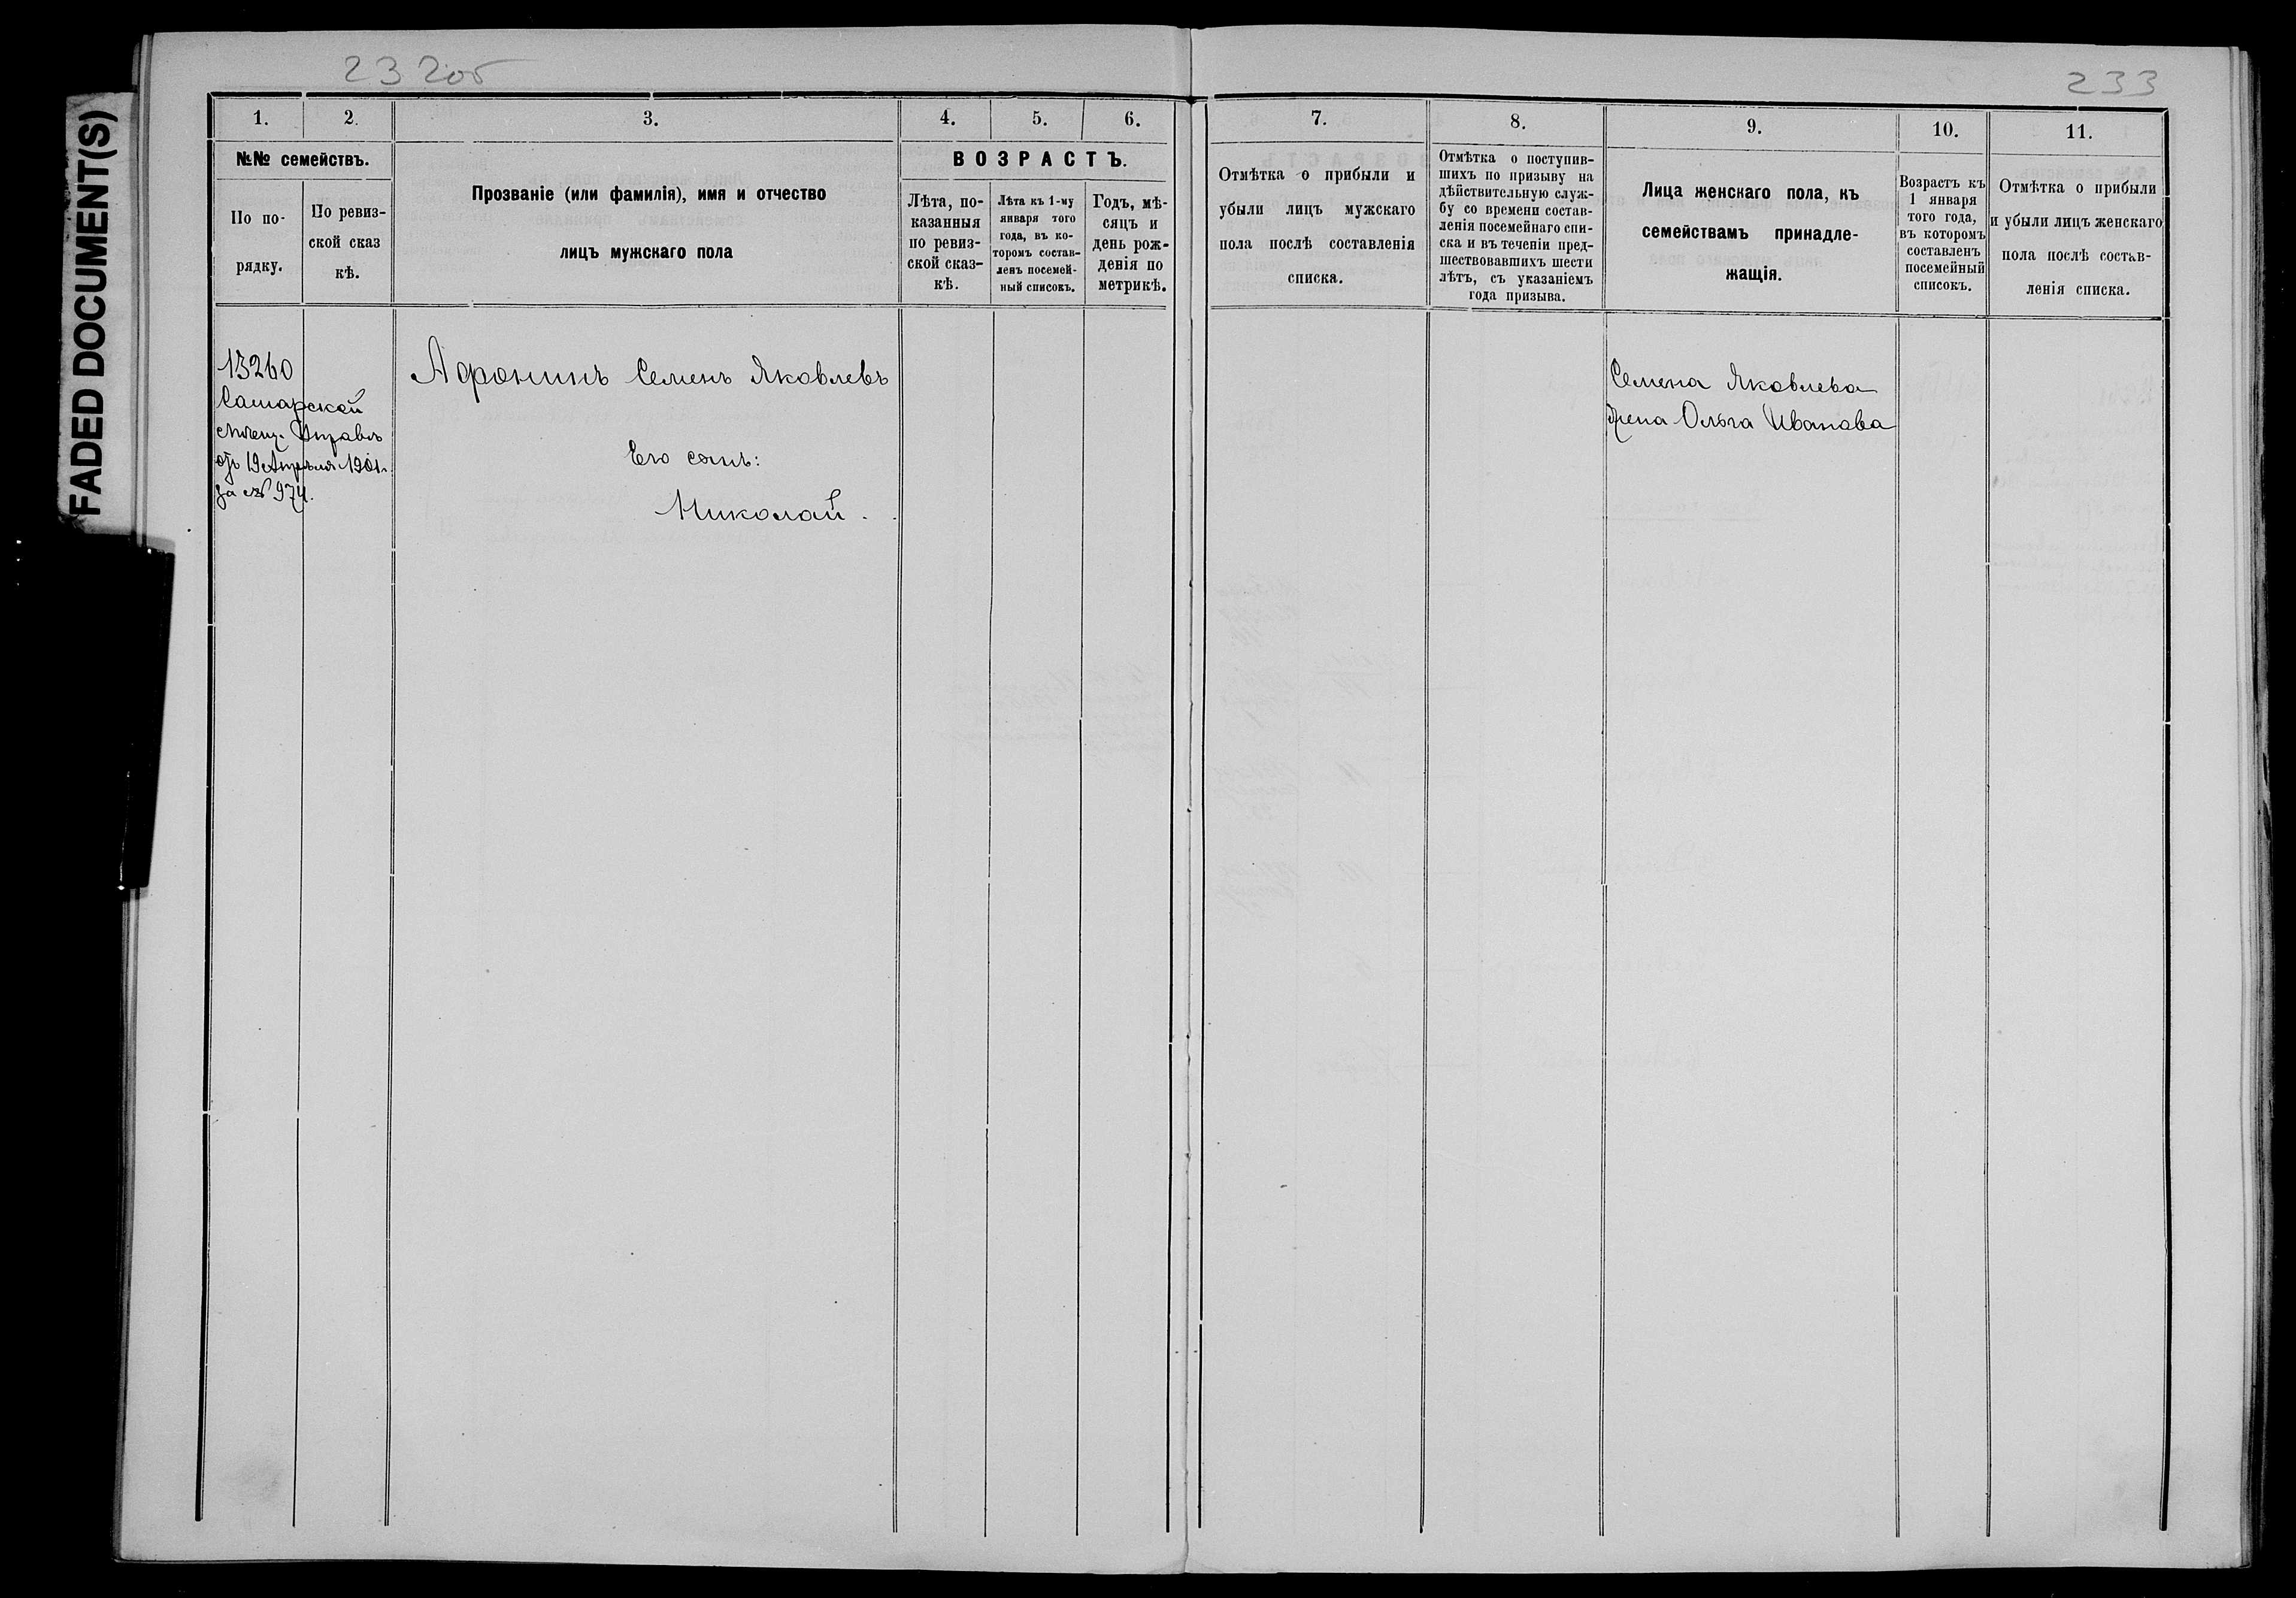 FADED DOCUMENT(S)
232об
233
1.
2.
3.
4.
5.
6.
7.
8.
9.
10.
11.
№№ семействъ.
По по-
рядку.
По ревиз-
ской сказ
кѣ.
Прозваніе (или фамилія), имя и отчество
лицъ мужскаго пола
ВОЗРАСТЪ.
Лѣта, по-
казанныя
по ревиз-
ской сказ-
кѣ.
Лѣта къ 1-му
января того
года, въ ко-
торомъ состав-
ленъ посемей-
ный списокъ.
Годъ, мѣ-
сяцъ и
день рож-
денія по
метрикѣ.
Отмѣтка о прибыли и
убыли лицъ мужскаго
пола послѣ составленія
списка.
Отмѣтка о поступив-
шихъ по призыву на
дѣйствительную служ-
бу со времени состав-
ленія посемейнаго спи-
ска и въ теченіи пред-
шествовавшихъ шести
лѣтъ, съ указаніемъ
года призыва.
Лица женскаго пола, къ
семействамъ принадле-
жащія.
Возрастъ къ
1 января
того года,
въ которомъ
составленъ
посемейный
списокъ.
Отмѣтка о прибыли
и убыли лицъ женскаго
пола послѣ состав-
ленія списка.
13260
Самарской
мѣщ. Управы
отъ 19 Апрѣля 1901 г.
за № 974.
Афонинъ Семенъ Яковлевъ
Его сынъ:
Николай.
Семена Яковлева
жена Ольга Иванова